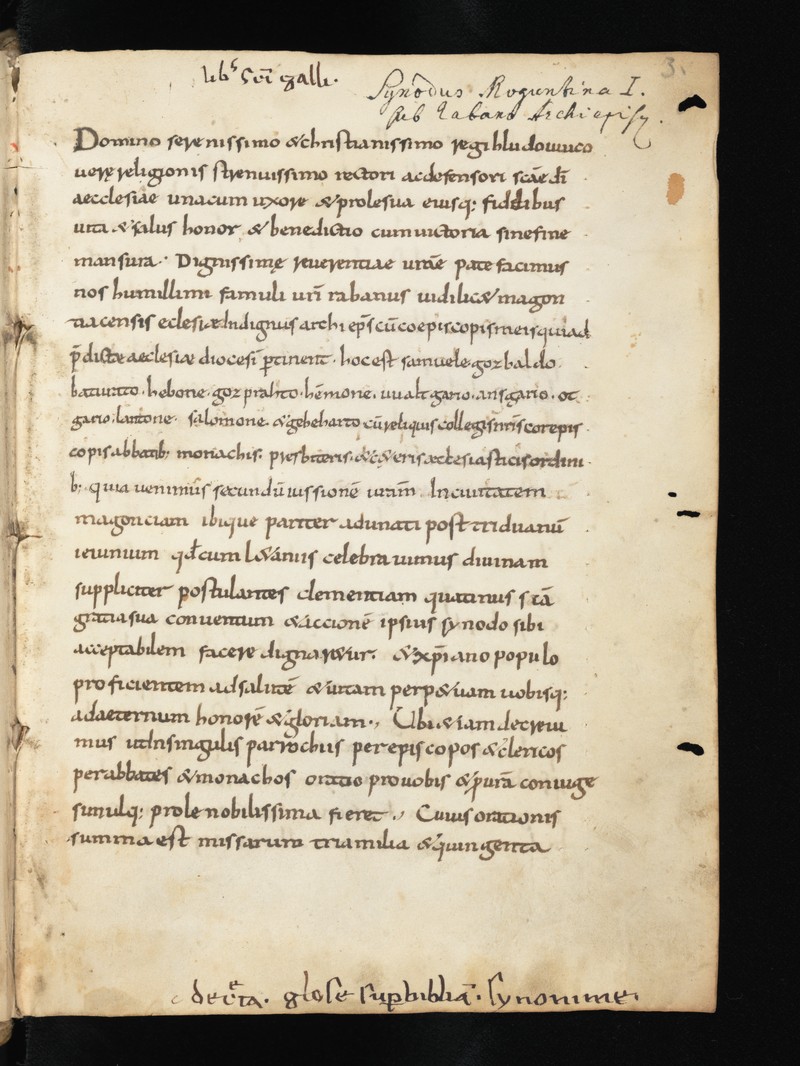 lib᷒ sc̄i galli.
3.
Synodus Moguntina I.
sub Rabano Archiepisc.
Domino serenissimo & christianissimo regi hludouuico
uerę religionis strenuissimo rectori ac defensori scāe dī
aecclesiae una cum uxore & prole sua eiusq; fidelibus
uita & salus honor & benedictio cum uictoria sine fine
mansura. Dignissimę reuerentiae urāe patefacimus
nos humillimi famuli urī rabanus uidilic& magon
tiacensis eclesiæ Indignus archi ep̄s cū coepiscopis meis qui ad
p̄dictæ aeclesiæ diocesī ꝑtinent. hoc est samuele. gozbaldo
baturato. hebone. gozprahto. hēmone. uualtgario. ansgario. ot
gario. lantone. salomone. & gebeharto cū reliquis collegis nrīs corepis
copis abbatib; monachis. presbiteris. & c&eris æclesiasticis ordini
b; quia uenimus secundū iussionē urām In ciuitatem
magonciam ibique pariter adunati post triduanū
ieiunium qd̄ cum l&aniis celebrauimus diuinam
suppliciter postulantes clementiam quatinus suā
gratia sua conuentum & accionē ipsius synodo sibi
acceptabilem facere dignar&ur. & xp̄iano populo
proficientem ad salutē & uitam perp&uam uobisq;
ad aeternum honorē & gloriam., Ubi & iam decreui
mus ut In singulis parrochiis per episcopos & clericos
per abbates & monachos oratio pro uobis & ꝓ urā coniuge
simulq; prole nobilissima fieret., Cuius orationis
summa est missarum tria milia & quingenta
glose sup bibliā. synonime.